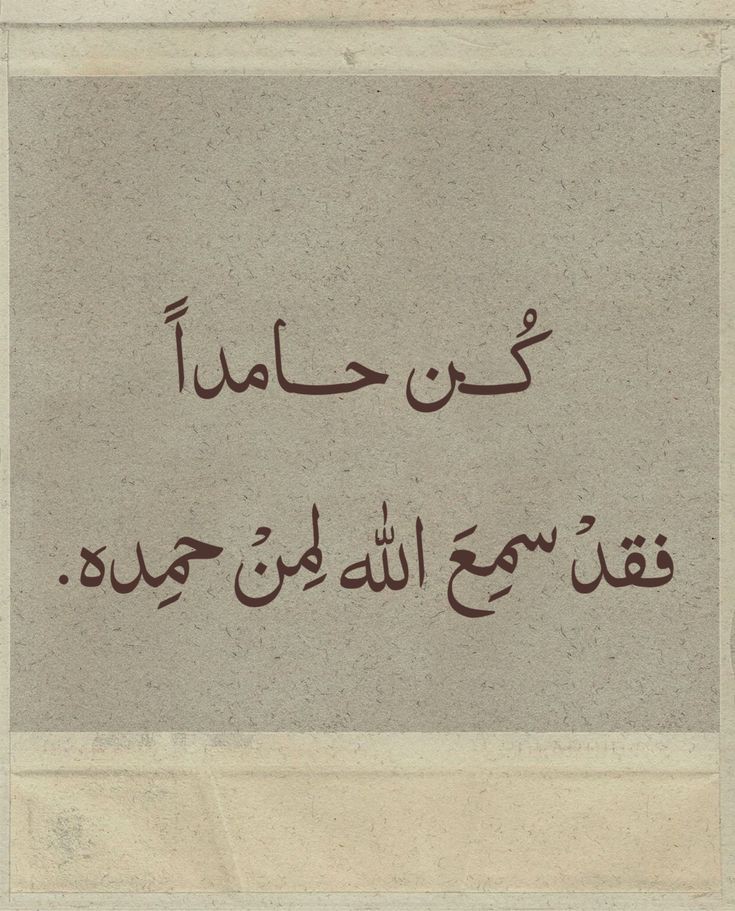 كُـن حـامداً
فقدْ سمِعَ الله لِمنْ حمِده.